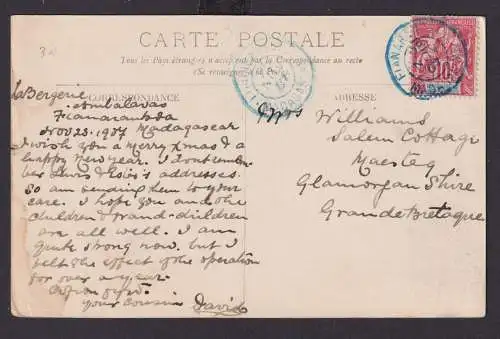 3-
CARTE POSTALE
Tous les Pays étrangers n'acceptent pas la Correspondance au recto
(Se renseigner à la Poste)
CORRESPONDANCE
ADRESSE
La Bergerie
Ambalavao
Fianarantsoa
Nov 23. 1907 Madagascar
I wish you a merry Xmas & a
happy New year. I dont remem
ber Lewis & Lois's addresses.
So am sending them to your
care. I hope you and the
children & grand-children
are all well. I am
quite strong now. but I
felt the effect of the operation
for over a year.
your cousin David
Mrs
Williams
Salem Cottage
Maesteg
Glamorgan Shire
Grande Bretagne
FIANAR
10